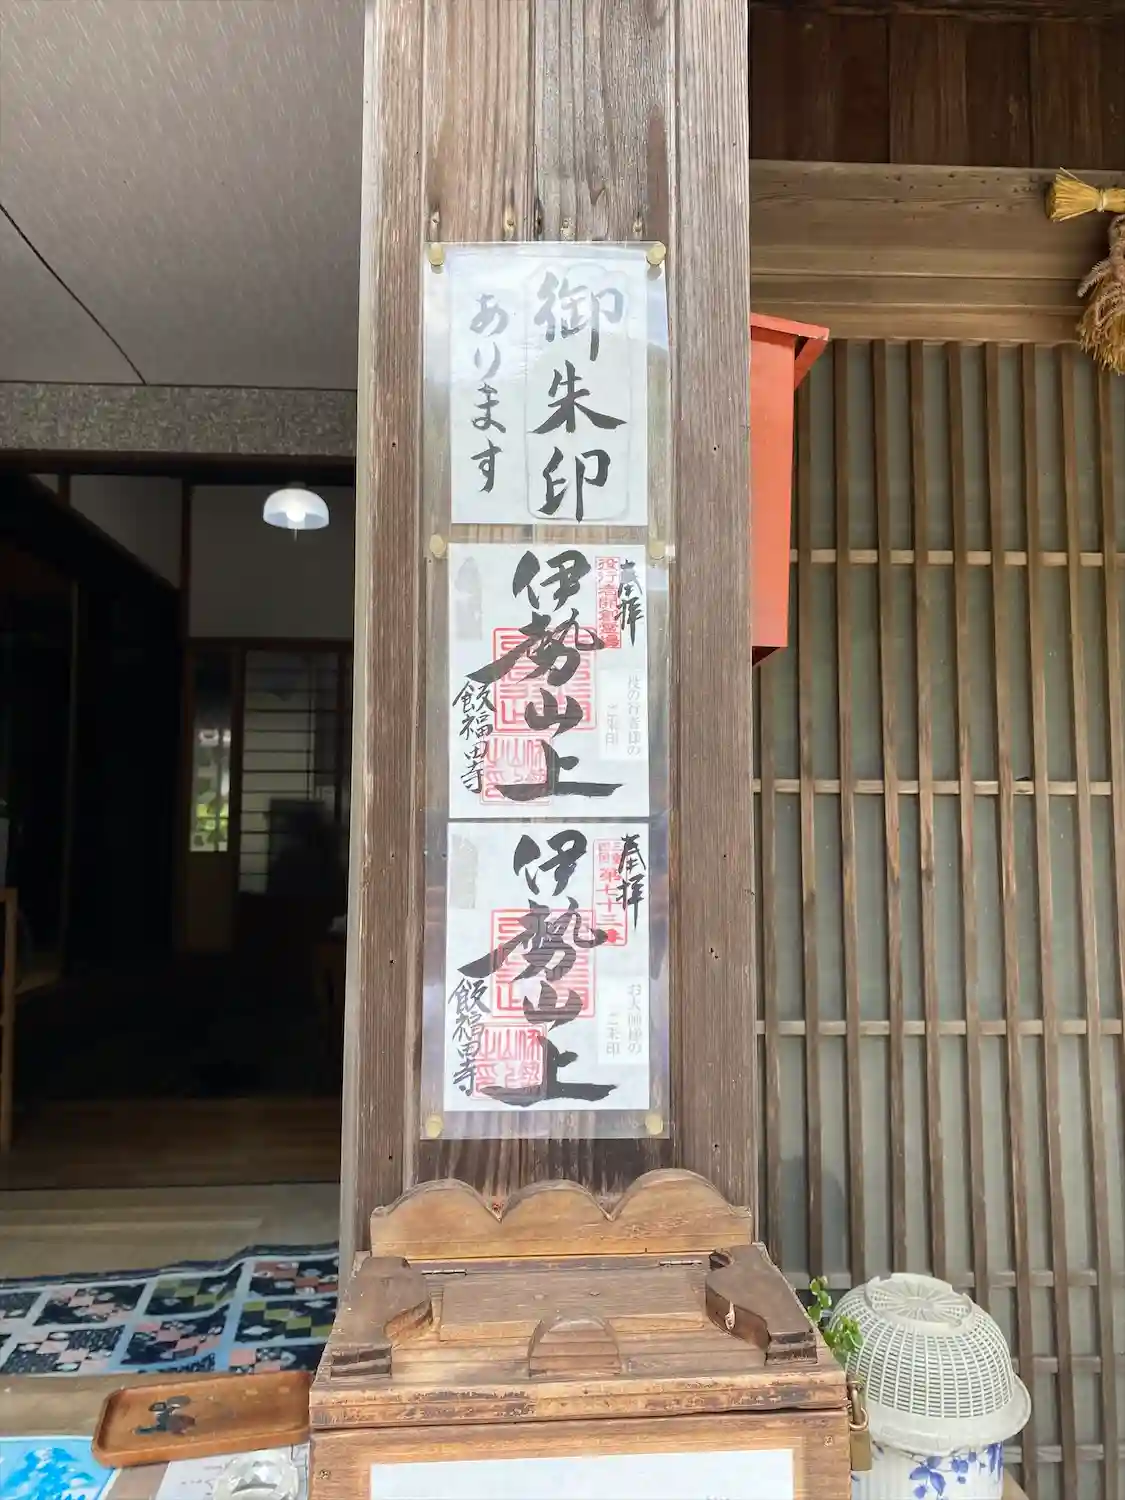 御朱印
あります
奉拝
役行者開創霊場
伊勢山上
飯福田寺
役の行者様の
ご朱印
奉拝
第七十三番
伊勢山上
飯福田寺
お大師様の
ご朱印